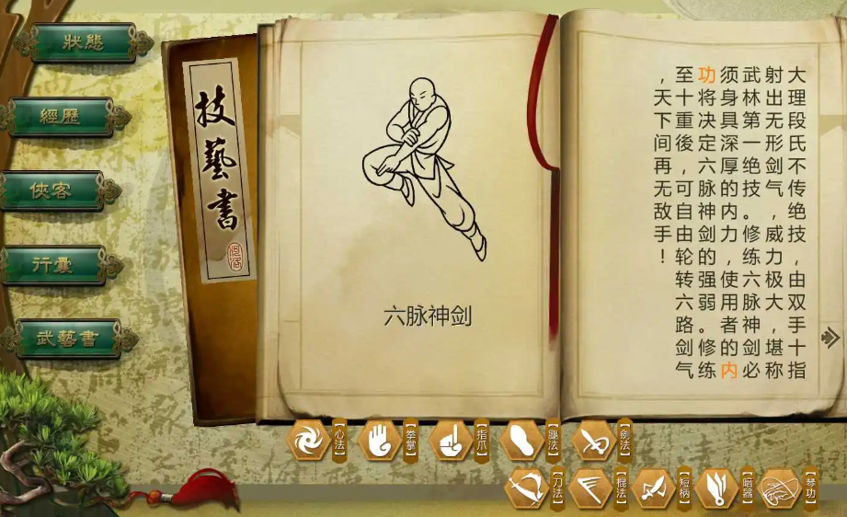 狀態
經歷
俠客
行囊
武藝書
技藝書
六脉神剑
大理段氏不传绝技，由双手十指
射出无形剑气，威力极大，堪称
武林第一绝技。修练六脉神剑必
须身具深厚的内力，使用者的内
功将决定六脉神剑的强弱。修练
至十重後，可自由轮转六路剑气
，天下间再无敌手！
【心法】
【拳掌】
【指爪】
【腿法】
【剑法】
【刀法】
【棍法】
【短柄】
【暗器】
【琴功】